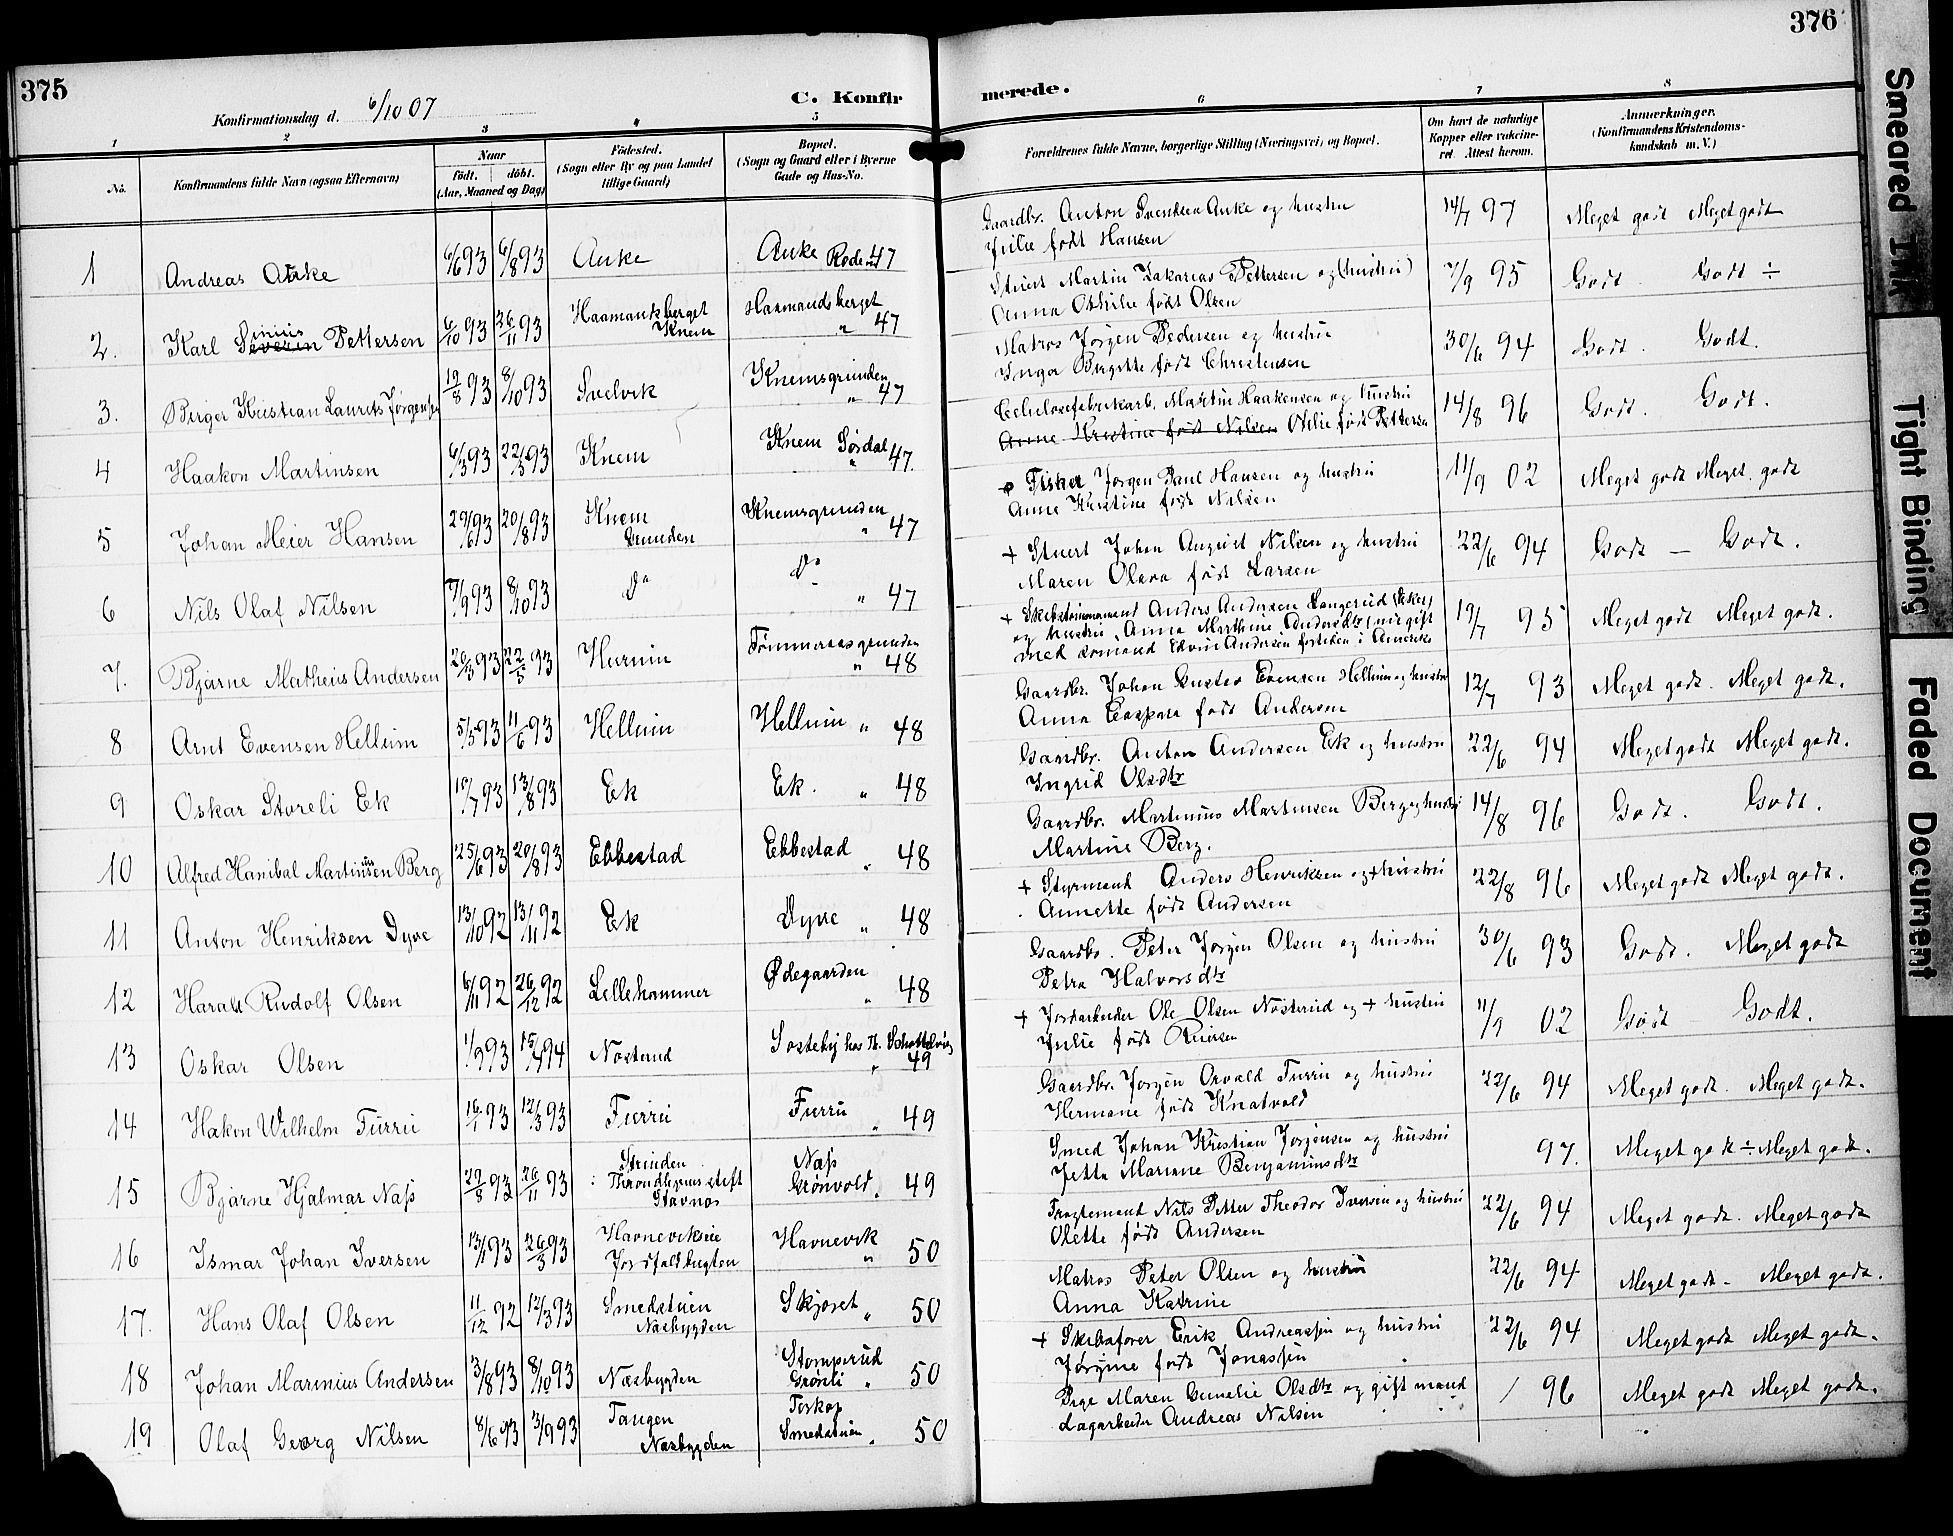 375
376
Konfirmationsdag d. 6/10 07
C. Konfir
merede.
1 2 3 4 5 6 7 8
No.
Konfirmandens fulde Navn (ogsaa Efternavn)
Naar
født. døbt.
(Aar, Maaned og Dag)
Fødested.
(Sogn eller By og paa Landet
tillige Gaard)
Bopæl.
(Sogn og Gaard eller i Byerne
Gade og Hus-No.
Forældrenes fulde Navne, borgerlige Stilling (Næringsvei) og Bopæl.
Om havt de naturlige
Kopper eller vakcine-
ret. Attest herom.
Anmærkninger.
(Konfirmandens Kristendoms-
kundskab m. V.)
1 Andreas Auke 6/6 93 6/8 93 Auke Auke Rode 47
Gaardbr. Anton Svendsen Auke og hustru
Julie født Hansen
14/7 97 Meget godt Meget godt
2. Karl Sinius Severin Pettersen 6/10 93 26/11 93 Haamanksberget Knem Haamandsberget " 47
Stuert Martin Zakarias Pettersen og (hustru)
Anna Othilie født Olsen
7/9 95 Godt. Godt ÷
3. Berger Kristian Laurits Jørgensen 12/8 93 8/10 93 Svelvik Knemsgrunden " 47
Matros Jørgen Pedersen og hustru
Inga Birgitte født Christensen
30/6 94 Godt. Godt.
4 Haakon Martinsen 6/3 93 22/5 93 Knem Knem Sørdal " 47.
Celulosefabrikarb. Martin Haakensen og hustru
Anne Kristine født Nilsen Otilie født Pettersen
14/8 96 Godt. Godt.
5 Johan Meier Hansen 29/6 93 20/8 93 Knem Grunden Knemsgrunden " 47
Fisker Jørgen Paul Hansen og hustru
Anne Kristine født Nilsen
11/9 02 Meget godt Meget godt
6 Nils Olaf Nilsen 7/9 93 8/10 93 do do " 47
+ Stuert Johan August Nilsen og hustru
Maren Olava født Larsen
22/6 94 Godt — Godt.
7. Bjarne Matheus Andersen 20/3 93 22/5 93 Hurum Tømmeraasgrunden " 48
+ Skibstømmermand Anders Andersen Langerud (Eker)
og hustru, Anna Marthine Andersdtr (nu gift
med Formand Edvin Andersen fortiden i Amerika
19/7 95 Meget godt Meget godt.
8 Arnt Evensen Hellum 5/5 93 11/6 93 Hellum Hellum " 48
Gaardbr. Johan Gustav Evensen Hellum og hustru
Anna Caspara født Andersen
12/7 93 Meget godt. Meget godt.
9 Oskar Storeli Ek 13/8 93 Ek Ek. " 48
Gaardbr. Anton Andersen Ek og hustru
Ingrid Olsdtr
22/6 94 Meget godt Meget godt.
10 Alfred Hanibal Martinsen Berg 25/6 93 20/8 93 Ebbestad Ebbestad " 48
Gaardbr. Martinius Martinsen Berg og hustru
Martine Berg.
14/8 96 Godt. Godt.
11 Anton Henriksen Dyve 13/10 92 13/11 92 Ek Dyve " 48
+ Styrmand Anders Henriksen og + hustru
Annette født Andersen
22/8 96 Meget godt Meget godt.
12 Harald Rudolf Olsen 6/11 92 26/12 92 Lillehammer Ødegaarden " 48
Gaardbr. Peter Jørgen Olsen og hustru
Petra Halvorsdtr
30/6 93 Godt. Meget godt
13 Oskar Olsen 1/9 93 15/4 94 Nøsterud Sosteby hos Th. " 49
+ Jordarbeider Ole Olsen Nøsterud og + hustru
Julie født Reiersen
11/9 02 Godt Godt.
14 Hakon Wilhelm Furru 16/1 93 12/3 93 Furru Furru " 49
Gaardbr. Jørgen Osvald Furru og hustru
Hermane født Knatvold
22/6 94 Meget godt. Meget godt.
15 Bjarne Hjalmar Næss 27/8 93 26/11 93 Strinden Throndhjems stift Stavnæs Næss Grønvold. 49
Smed Johan Kristian Jørgensen og hustru
Jette Mariane Benjaminsdtr
97. Meget godt ÷ Meget godt.
16 Ismar Johan Iversen 13/1 93 26/3 93 Havnevikseie Jordfaldbugten Havnevik " 50
Fragtemand Nils Petter Theodor Iversen og hustru
Olette født Andersen
22/6 94 Meget godt. Meget godt
17. Hans Olaf Olsen 11/12 92 12/3 93 Smedstuen Næsbygden Skjøret " 50
Matros Peter Olsen og hustru
Anna Katrine
22/6 94 Meget godt - Meget godt.
18 Johan Marinius Andersen 3/8 93 8/10 93 Næsbygden Stomperud Grønli " 50
+ Skibsfører Erik Andreassen og hustru
Jørgine født Jonassen
22/6 94 Meget godt Meget godt.
19 Olaf Georg Nilsen 8/6 93 3/9 93 Tangen Næsbygden Torkop Smedstuen " 50
Pige Maren Gunelie Olsdtr og gift mand
Dagarbeider Andreas Nilsen
/ 96 Meget godt Meget godt.
Smeared Ink
Tight Binding
Faded Document